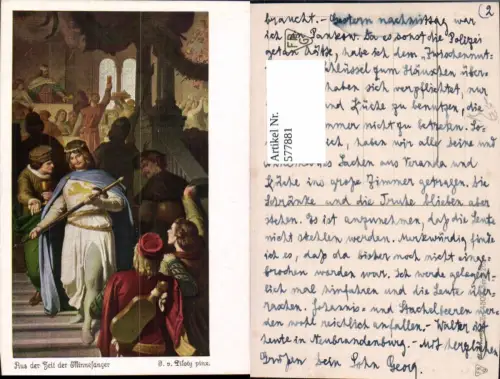 Aus der Zeit der Minnesänger
F. v. Piloty pinx.
2
braucht. – Gestern nachmittag war
ich Pankow. Da es sonst die Polizei
getan hätte, habe ich dem
Schlüssel zum Häuschen über-
haben sich verpflichtet, nur
und Küche zu benutzen, die
immer nicht zu betreten. So-
ich, haben wir alle seine und
Sachen aus Veranda und
Küche ins große Zimmer getragen. Die
Schränke und die Truhe blieben aber
stehen. Es ist anzunehmen, daß die Leute
nicht stehlen werden. Merkwürdig finde
ich es, daß da bisher noch nicht einge-
brochen worden war. Ich werde gelegent-
lich mal hinfahren und die Leute über-
raschen. Johannis- und Stachelbeeren wer-
den wohl reichlich anfallen. – Walter ist
heute in Neubrandenburg. – Mit herzlichen
Grüßen Dein Sohn Georg.
Artikel Nr.
577881